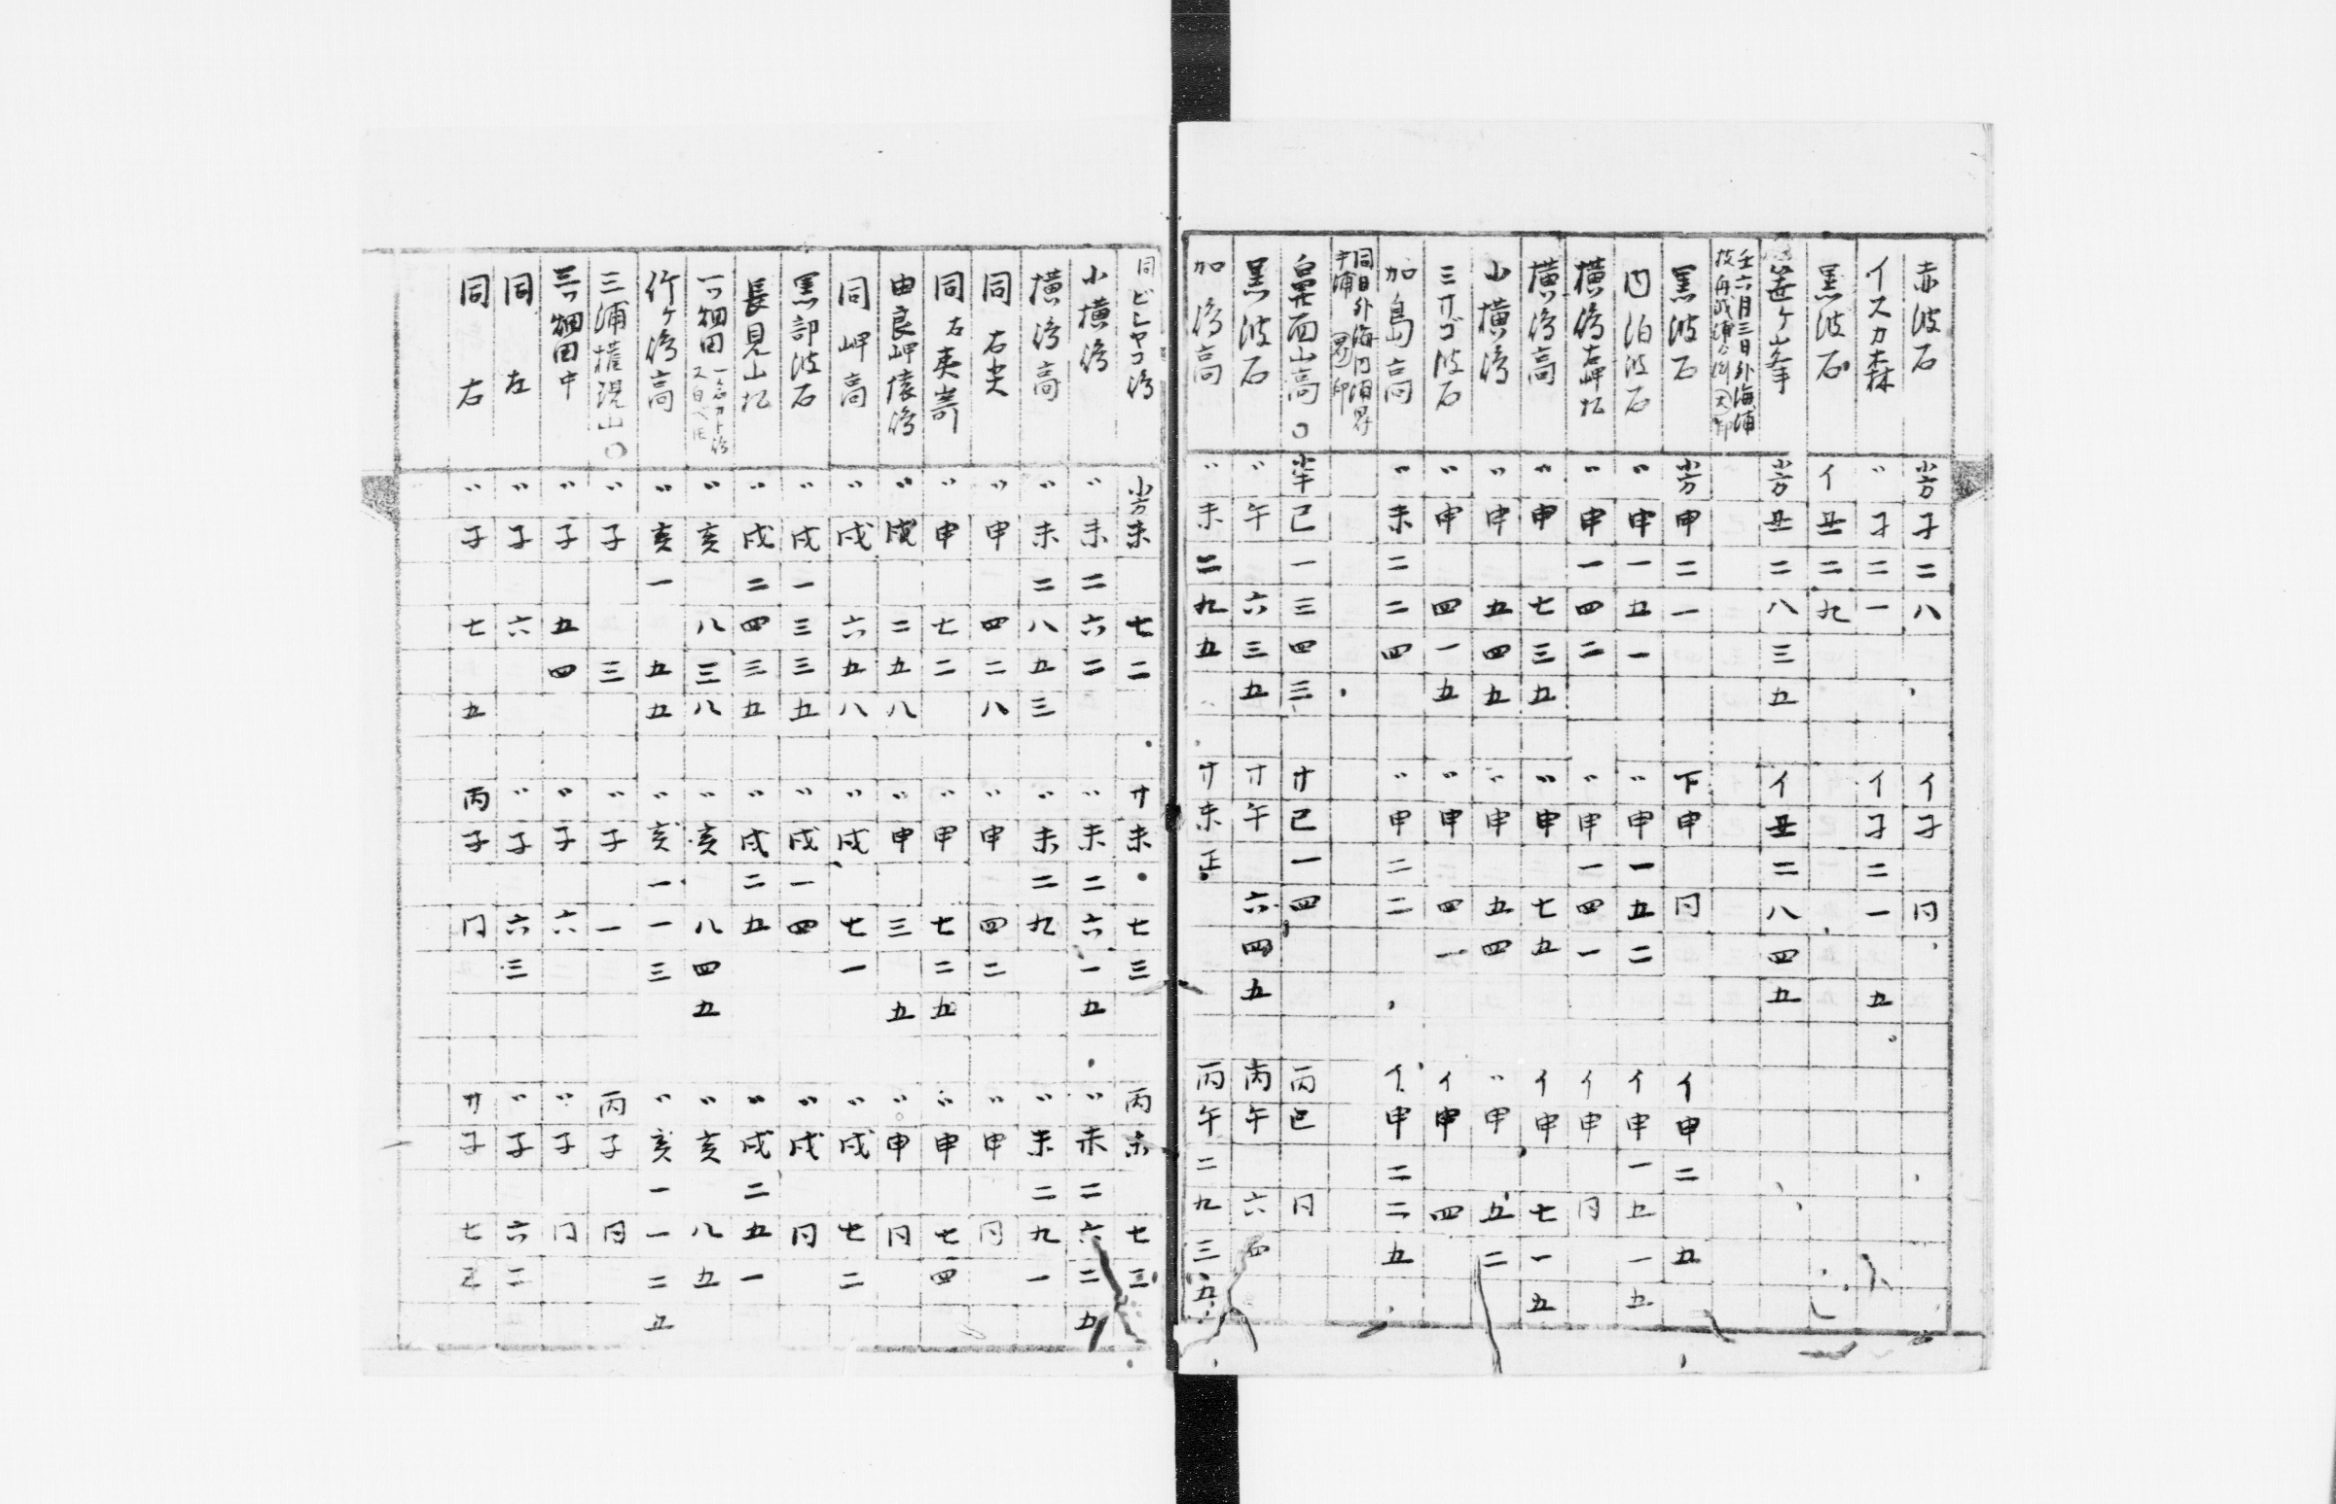 赤波石 〃 子二八 イ子 冂
イスカ森 〃 子二一 イ子二一 五
黒波石 イ丑二九
笠ヶ山峯 丑二八三五 イ丑二八四五
壬六月三日外海浦
黒波石 甲二一 下申 冂 イ申二 五
内泊波石 〃申一五一 〃申一五二 イ申一五一五
横嶋右岬松 〃申一四二 〃申一四一 イ申 冂
横嶋高 〃申 七三五 〃申 七五 イ申 七一五
小横嶋 〃申 五四五 〃申 五四 〃申 五二
三サゴ波石 〃申 四一五 〃申 四一 イ申 四
加島高 〃未二二四 〃申二二 イ申二二五
同日外海内泊界
鼻面山高〇 巳一三四三 サ巳一四 丙巳 冂
黒波石 〃午 六三五 サ午 六四五 丙午 六四
加嶋高 〃未二九五 サ未正 丙午二九三五
同ビシヤコ嶋 未 七二 サ未 七三 丙未 七三
小横嶋 〃未二六二 〃未二六一五 〃未二六二五
横嶋高 〃未二八五三 〃未二九 〃未二九一
同 右尖 〃申 四二八 〃申 四二 〃申 冂
同 右夷嵜 〃申 七二 〃申 七二五 〃申 七四
由良岬猿嶋 〃戌 二五八 〃申 三 五 〃申 冂
同 岬高 〃戌 六五八 〃戌 七一 〃戌 七二
黒部波石 〃戌一三三五 〃戌一四 〃戌 冂
長見山松 〃戌二四三五 〃戌二五 〃戌二五一
一ツ畑田 〃亥 八三八 〃亥 八四五 〃亥 八五
竹ヶ嶋高 〃亥一 五五 〃亥一一三 〃亥一一二五
三浦権現山〇 〃子 三 〃子 一 丙子 冂
三ツ畑田中 〃子 五四 〃子 六 〃子 冂
同 左 〃子 六 〃子 六三 〃子 六二
同 右 〃子 七 五 丙子 冂 サ子 七